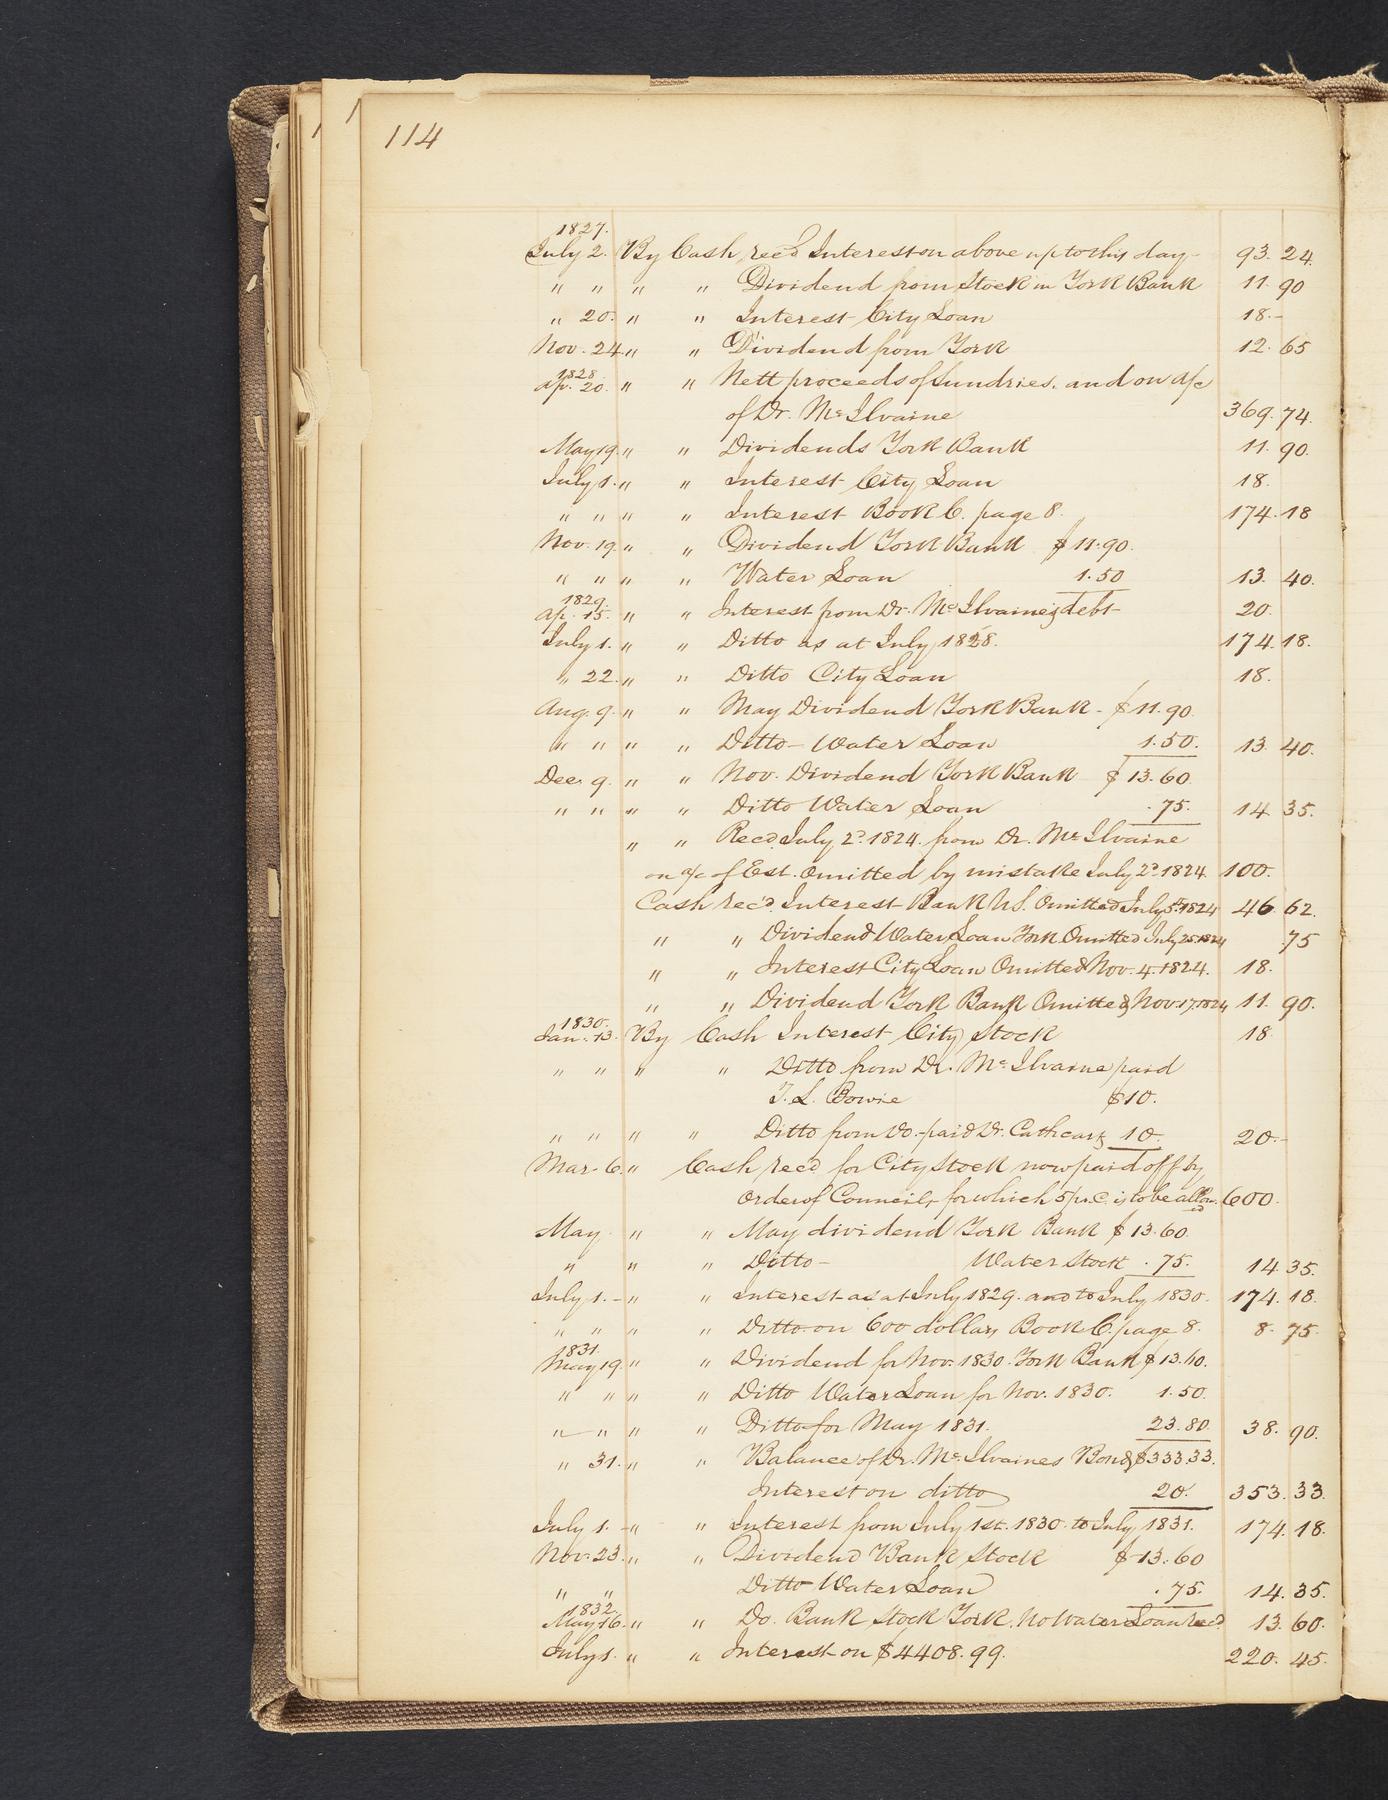 114
1827.
July 2. By Cash rec'd Interest on above up to this day - 93. 24.
" " " " Dividend from Stock in York Bank 11. 90
" 20. " " Interest City Loan 18.-
Nov. 24. " " Dividend from York 12. 65
1828.
Ap. 20. " " Nett proceeds of Sundries. and on a/c
of Dr. McIlvaine 369. 74.
May 19. " " Dividends York Bank 11. 90.
July 1. " " Interest City Loan 18.
" " " " Interest Book C. page 8. 174. 18
Nov. 19. " " Dividend York Bank $11.90.
" " " " Water Loan 1.50 13. 40.
1829.
Ap. 15. " " Interest from Dr. McIlvaines debt 20.
July 1. " " Ditto as at July 1828. 174. 18.
" 22. " " Ditto City Loan 18.
Aug. 9. " " May Dividend York Bank - $11.90.
" " " " Ditto - Water Loan 1.50. 13. 40.
Dec. 9. " " Nov. Dividend York Bank $13.60.
" " " " Ditto Water Loan .75. 14 35.
" " Rec'd July 2d. 1824. from Dr. McIlvaine
on a/c of Est. Omitted by mistake July 2d. 1824. 100.
Cash rec'd. Interest Bank U.S. Omitted July 5th. 1824 46. 62.
" " Dividend Water Loan York Omitted July 25. 1824 .75
" " Interest City Loan Omitted Nov. 4. 1824. 18.
" " Dividend York Bank Omitted Nov. 17. 1824 11. 90.
1830.
Jan. 13. By Cash Interest City Stock 18.
" " " " Ditto from Dr. McIlvaine paid
T. L. Bowie $10.
" " " " Ditto from Do. - paid Dr. Cathcart 10. 20.-
Mar. 6. " Cash rec'd for City Stock now paid off by
order of Councils, for which 5 pr. C. is to be allowed 600.
May " " May dividend York Bank $13.60.
" " " Ditto - Water Stock .75. 14. 35.
July 1. - " " Interest as at July 1829. and to July 1830. 174. 18.
" " " " Ditto on 600 dollars Book C. page 8. 8. 75.
1831.
May 19. " " Dividend for Nov. 1830. York Bank $13.60.
" " " " Ditto Water Loan for Nov. 1830. 1.50.
" " " " Ditto for May 1831. 23.80. 38. 90.
" 31. " " Balance of Dr. McIlvaines Bond $333.33.
Interest on ditto 20. 353. 33.
July 1. - " " Interest from July 1st. 1830. to July 1831. 174. 18.
Nov. 23. " " Dividend Bank Stock $13.60
" " Ditto Water Loan .75. 14. 35.
1832.
May 16. " " Do. Bank Stock York. No Water Loan rec'd 13. 60.
July 1. " " Interest on $4408.99. 220. 45.